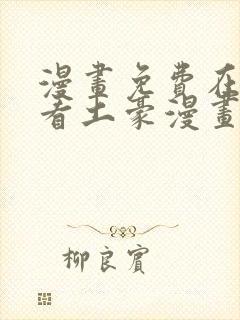 漫畫免費在
看土豪漫畫
柳良賓